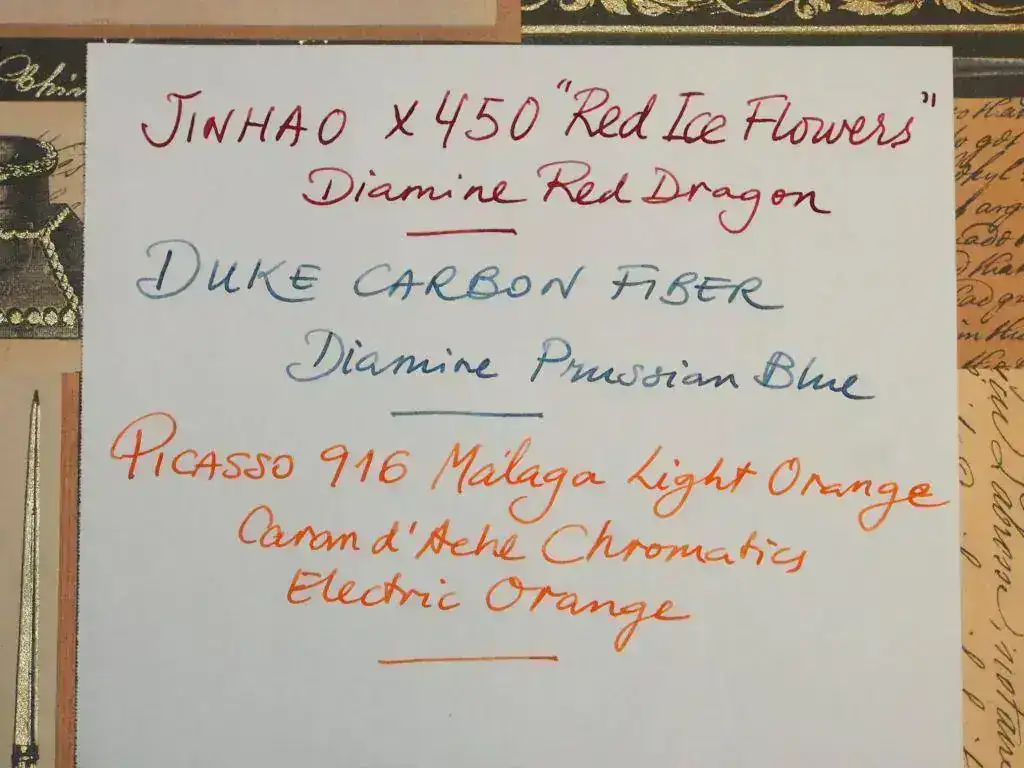 JINHAO X450 "Red Ice Flowers"
Diamine Red Dragon
DUKE CARBON FIBER
Diamine Prussian Blue
PICASSO 916 Málaga Light Orange
Caran d'Ache Chromatics
Electric Orange